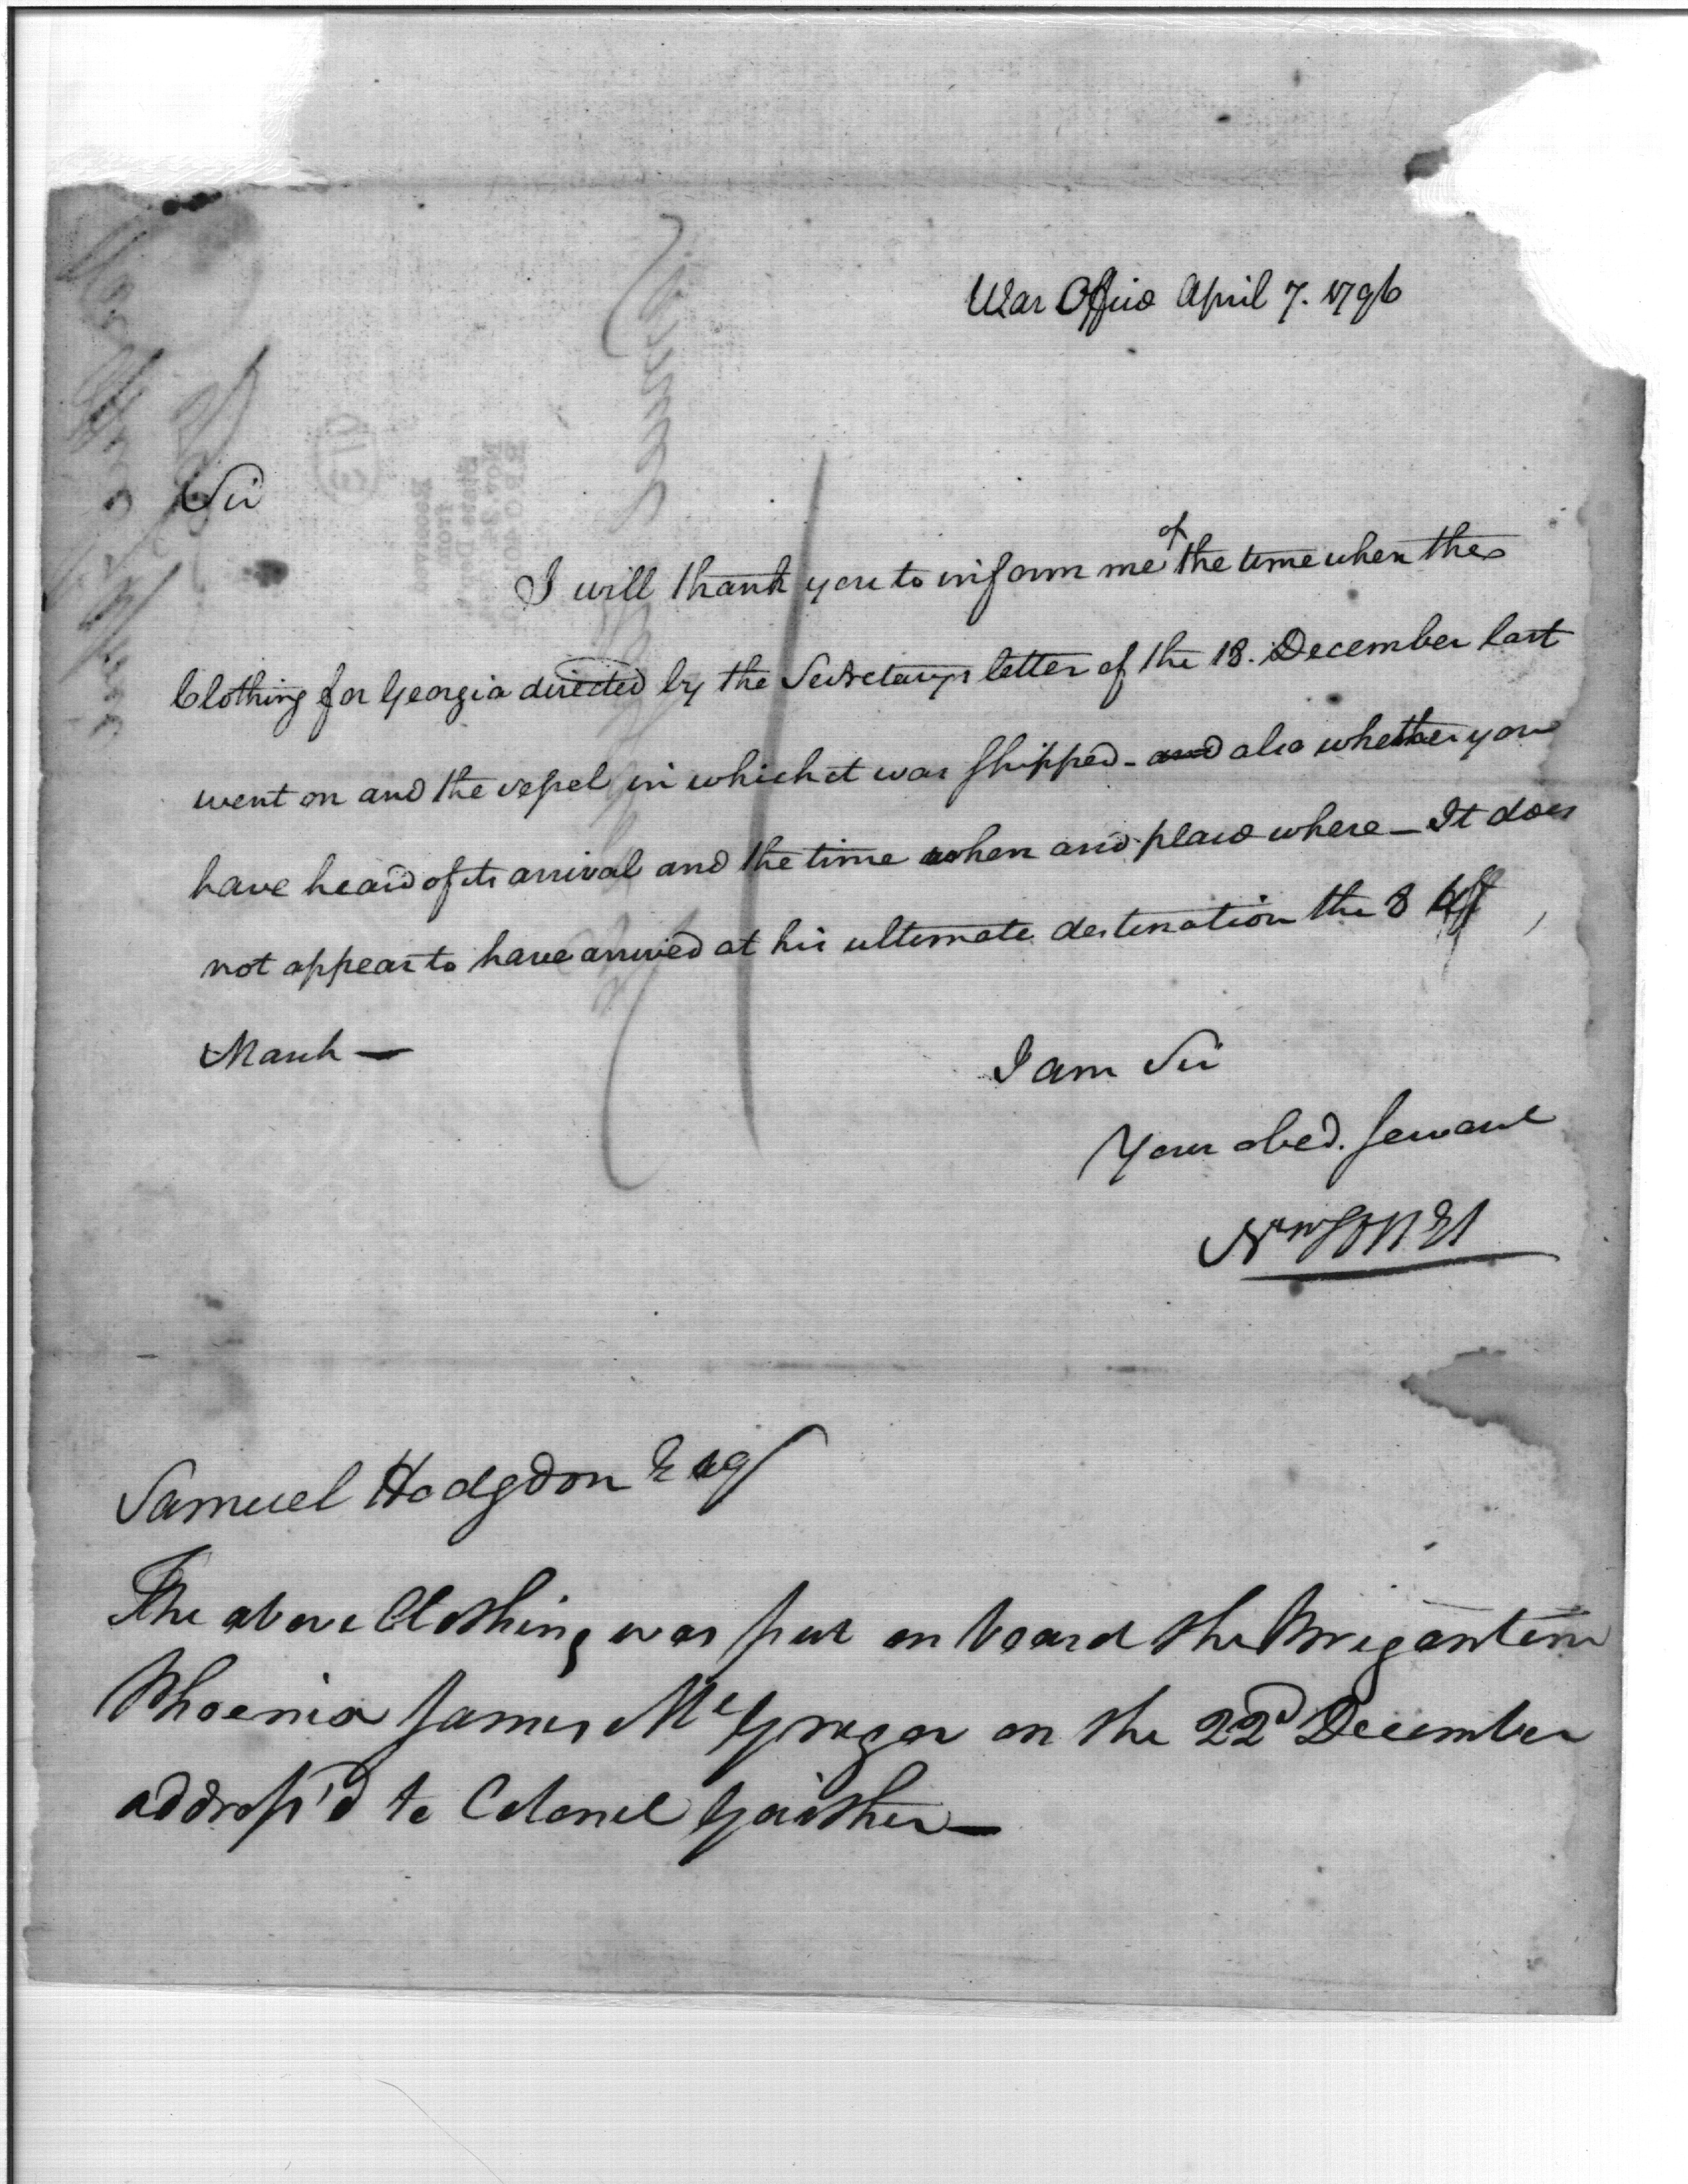 War Office April 7. 1796
Sir
I will thank you to inform me of the time when the
Clothing for Georgia directed by the Secretarys letter of the 18. December last
went on and the vessel in which it was shipped - and also whether you
have heard of its arrival and the time when and place where - It does
not appear to have arrived at his ultimate destination the 8
March -
I am Sir
Your obed. Servant
Samuel Hodgdon Esq
The above Clothing was put on board the Brigantine
Phoenix James McGregor on the 22d December
address'd to Colonel Gaither -